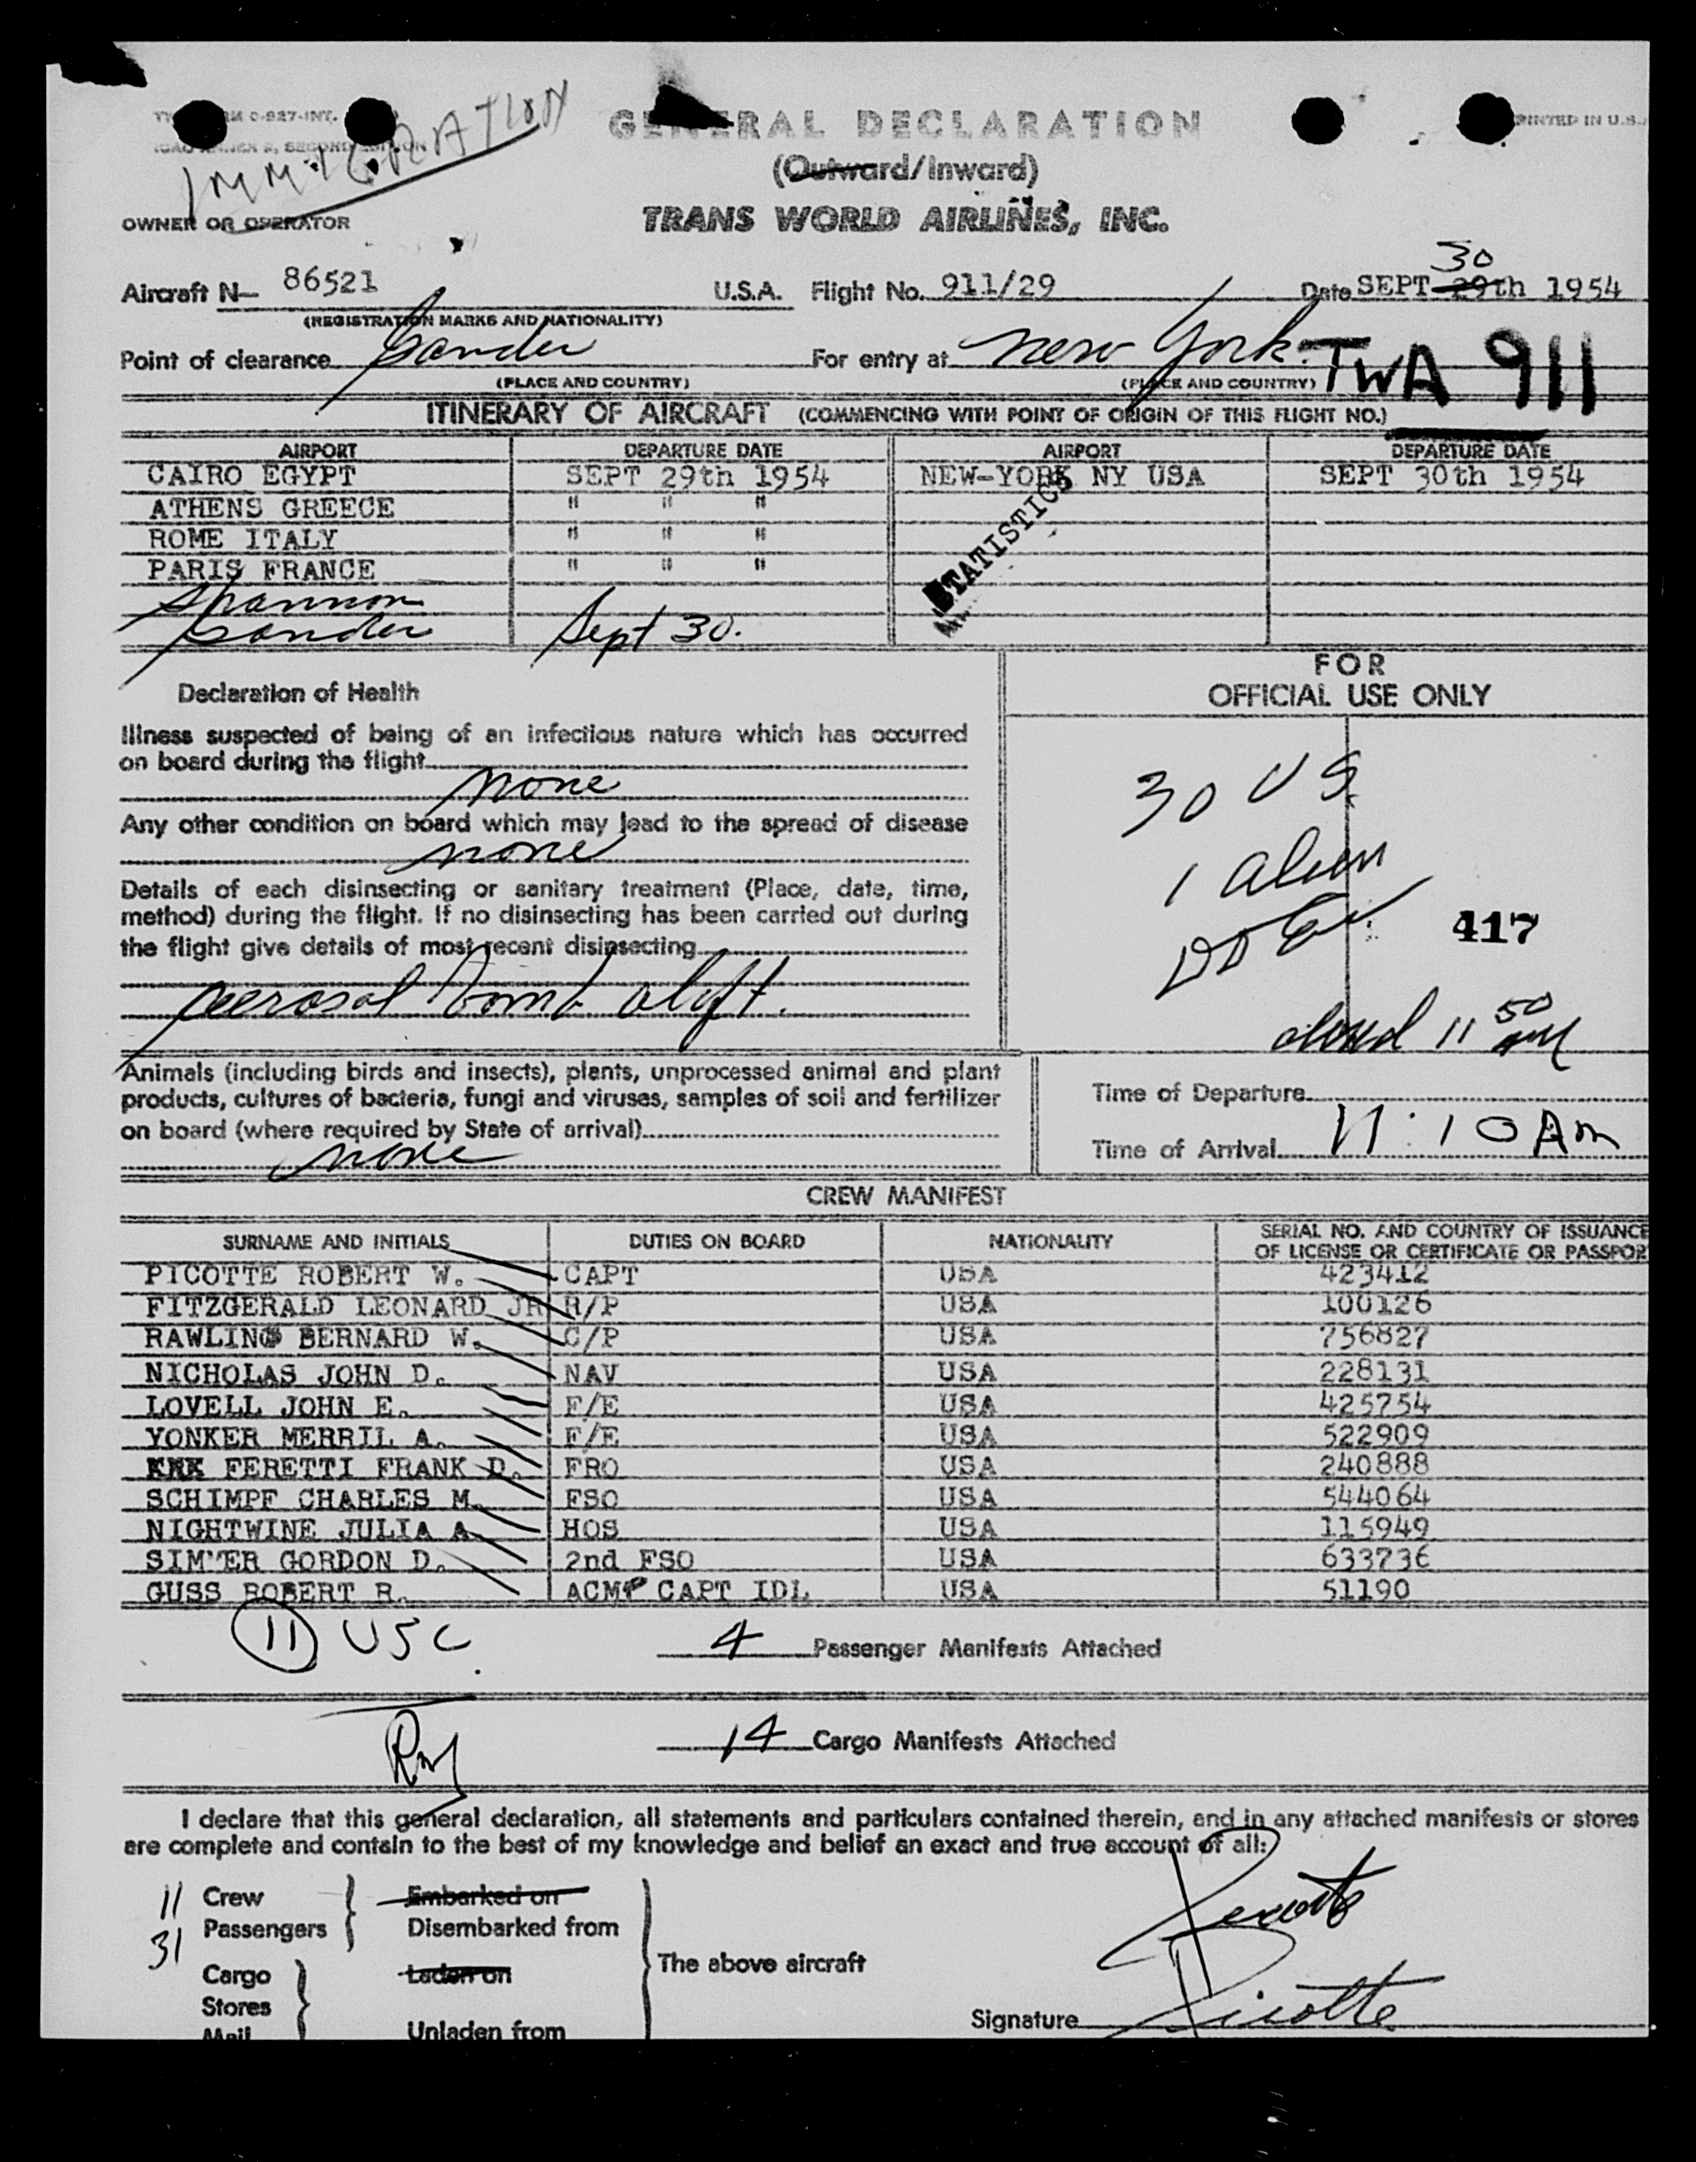 GENERAL DECLARATION
(Outward/Inward)
IMMIGRATION
OWNER OR OPERATOR
TRANS WORLD AIRLINES, INC.
30
Aircraft N- 86521 U.S.A. Flight No. 911/29 Date SEPT 29th 1954
(REGISTRATION MARKS AND NATIONALITY)
Point of clearance Gander For entry at New York.
(PLACE AND COUNTRY) (PLACE AND COUNTRY)
TWA 911
ITINERARY OF AIRCRAFT (COMMENCING WITH POINT OF ORIGIN OF THIS FLIGHT NO.)
AIRPORT DEPARTURE DATE AIRPORT DEPARTURE DATE
CAIRO EGYPT SEPT 29th 1954 NEW-YORK NY USA SEPT 30th 1954
ATHENS GREECE " " "
ROME ITALY " " "
PARIS FRANCE " " "
Shannon
Gander Sept 30.
STATISTICS
FOR
OFFICIAL USE ONLY
Declaration of Health
Illness suspected of being of an infectious nature which has occurred
on board during the flight
none
Any other condition on board which may lead to the spread of disease
none
Details of each disinsecting or sanitary treatment (Place, date, time,
method) during the flight. If no disinsecting has been carried out during
the flight give details of most recent disinsecting
aerosol bomb aloft.
30 US
1 alien
417
closed 11 50 AM
Animals (including birds and insects), plants, unprocessed animal and plant
products, cultures of bacteria, fungi and viruses, samples of soil and fertilizer
on board (where required by State of arrival)
none
Time of Departure
Time of Arrival 11:10 Am
CREW MANIFEST
SURNAME AND INITIALS DUTIES ON BOARD NATIONALITY SERIAL NO. AND COUNTRY OF ISSUANCE
OF LICENSE OR CERTIFICATE OR PASSPOR
PICOTTE ROBERT W. CAPT USA 423412
FITZGERALD LEONARD JR R/P USA 100126
RAWLINGS BERNARD W. C/P USA 756827
NICHOLAS JOHN D. NAV USA 228131
LOVELL JOHN E. F/E USA 425754
YONKER MERRIL A. F/E USA 522909
FERETTI FRANK D. FRO USA 240888
SCHIMPF CHARLES M. FSO USA 544064
NIGHTWINE JULIA A HOS USA 115949
GORDON D. 2nd FSO USA 633736
GUSS ROBERT R. ACM CAPT IDL USA 51190
11 USC
4 Passenger Manifests Attached
14 Cargo Manifests Attached
I declare that this general declaration, all statements and particulars contained therein, and in any attached manifests or stores
are complete and contain to the best of my knowledge and belief an exact and true account of all:
11 Crew Embarked on
31 Passengers Disembarked from
The above aircraft
Cargo Laden on
Stores
Mail Unladen from
Picotte
Signature Picotte